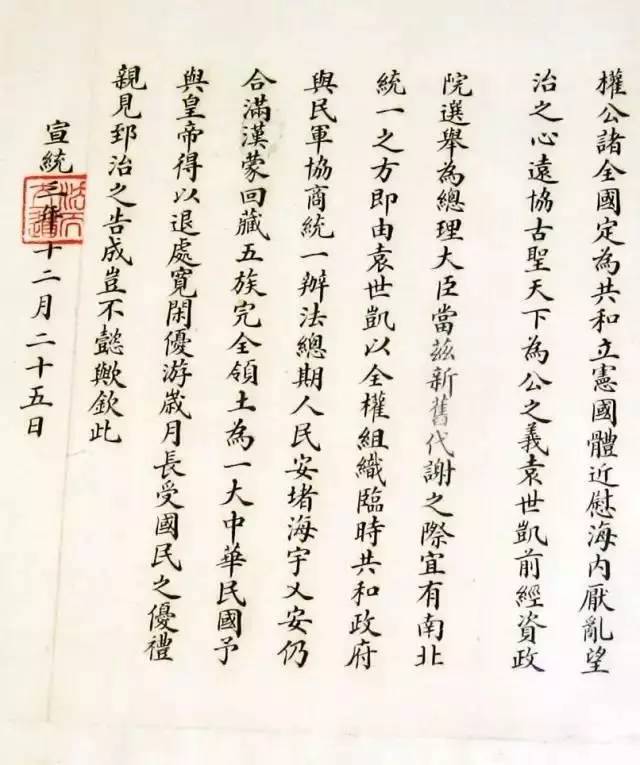 權公諸全國定為共和立憲國體近慰海內厭亂望
治之心遠協古聖天下為公之義袁世凱前經資政
院選舉為總理大臣當茲新舊代謝之際宜有南北
統一之方即由袁世凱以全權組織臨時共和政府
與民軍協商統一辦法總期人民安堵海宇乂安仍
合滿漢蒙回藏五族完全領土為一大中華民國予
與皇帝得以退處寬閑優游歲月長受國民之優禮
親見郅治之告成豈不懿歟欽此
宣統三年十二月二十五日
法天立道